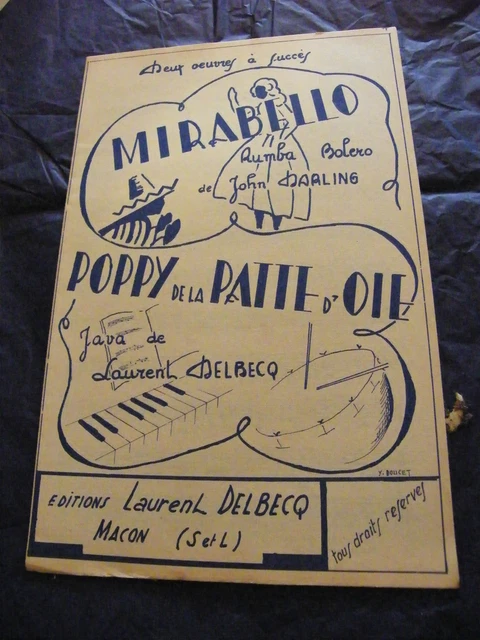 Deux oeuvres à succès
MIRABELLO
Rumba Bolero
de John DARLING
POPPY DE LA PATTE D'OIE
Java de
Laurent DELBECQ
Y. DOUCET
EDITIONS Laurent DELBECQ
MACON (S et L)
tous droits reserves